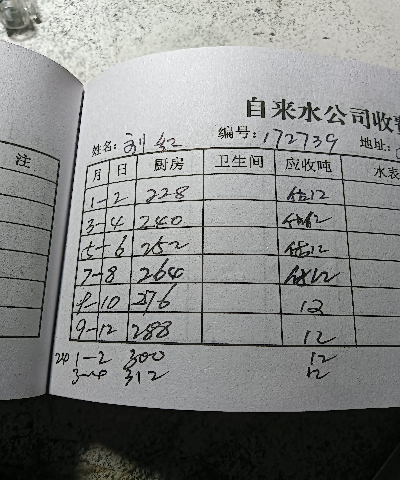 自来水公司收费
姓名: 刘红 编号: 172739 地址:
注
月 日 厨房 卫生间 应收吨 水表
1-2 228 估12
3-4 240 估12
5-6 252 估12
7-8 264 估12
9-10 276 12
9-12 288 12
1-2 300 12
3-4 312 12